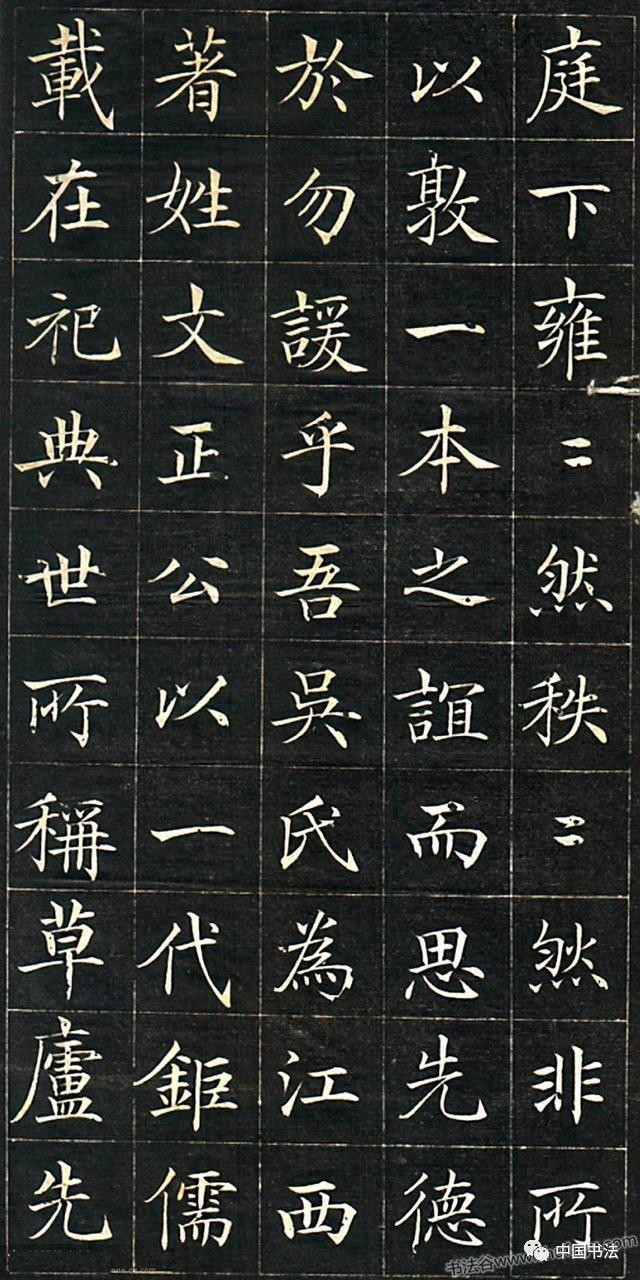 庭下雍〻然秩〻然非所
以敦一本之誼而思先德
於勿諼乎吾吳氏為江西
著姓文正公以一代鉅儒
載在祀典世所稱草廬先
中国书法